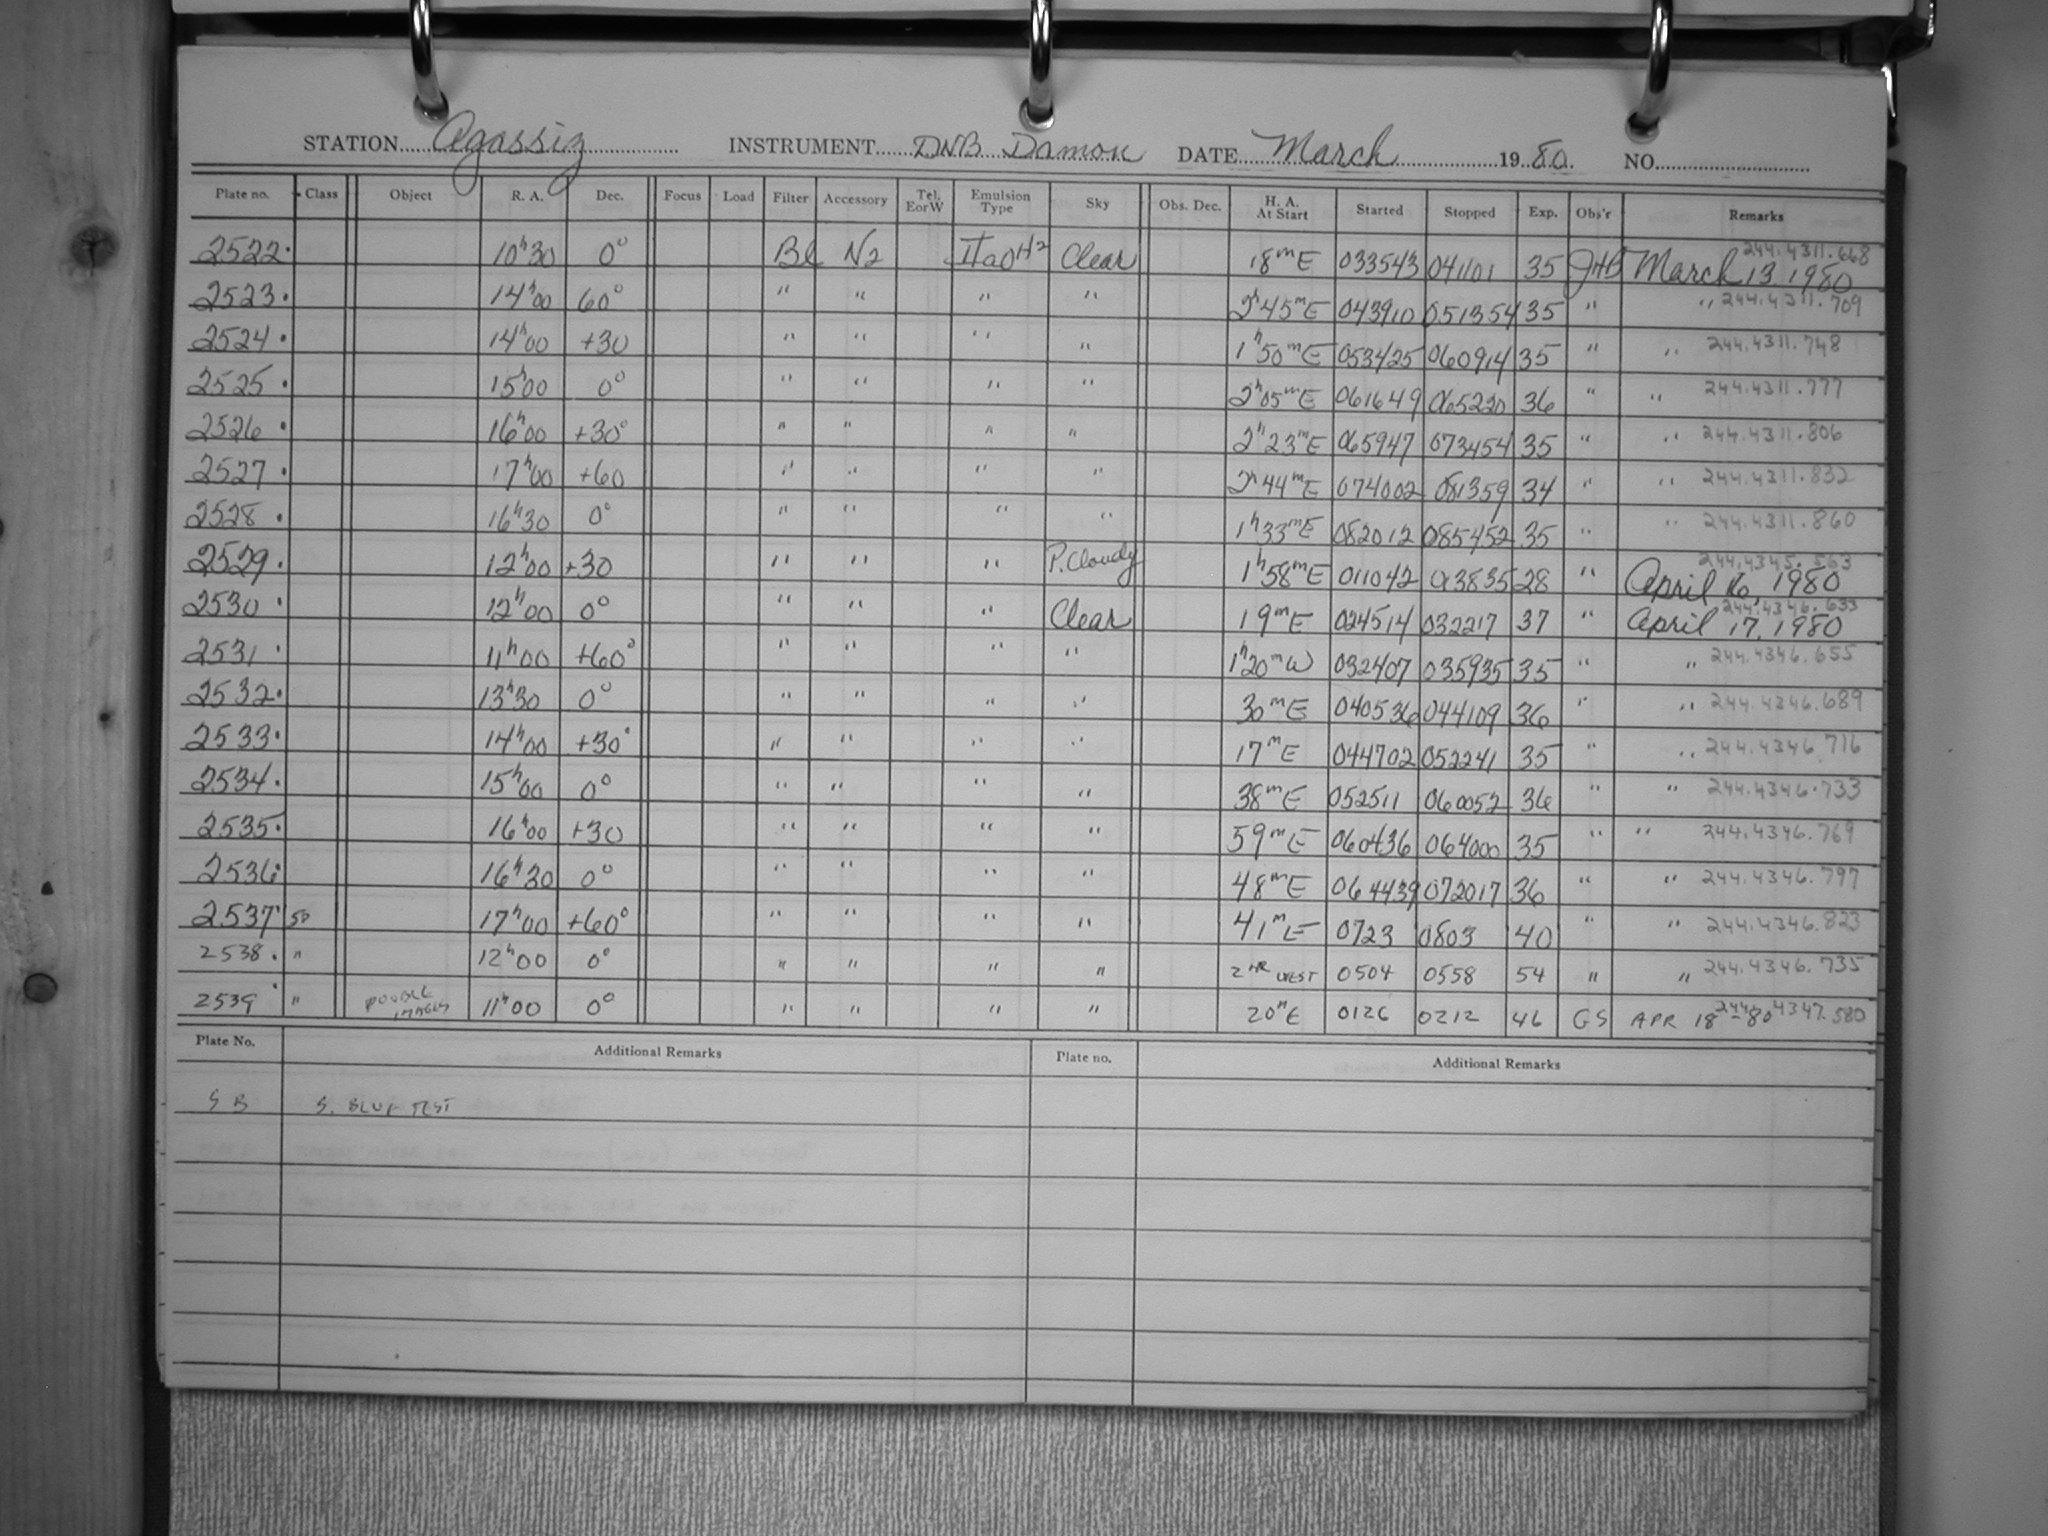 STATION Agassiz INSTRUMENT DNB Damon DATE March 1980. NO.
Plate no. Class Object R. A. Dec. Focus Load Filter Accessory Tel. E or W Emulsion Type Sky Obs. Dec. H. A. At Start Started Stopped Exp. Obs'r Remarks
2522. 10h30 0° Bl N2 IIaOH2 Clear 18mE 033543 041101 35 JHB March 13 1980 244.4311.668
2523. 14h00 60° " " " " 2h45mE 043910 051354 35 " " 244.4311.709
2524. 14h00 +30 " " " " 1h50mE 053425 060914 35 " " 244.4311.748
2525. 15h00 0° " " " " 2h05mE 061649 065220 36 " " 244.4311.777
2526. 16h00 +30° " " " " 2h23mE 065947 073454 35 " " 244.4311.806
2527. 17h00 +60 " " " " 2h44mE 074002 081359 34 " " 244.4311.832
2528. 16h30 0° " " " " 1h33mE 082012 085452 35 " " 244.4311.860
2529. 12h00 +30 " " " P. Cloudy 1h58mE 011042 013835 28 " April 16, 1980 244.4345.563
2530. 12h00 0° " " " Clear 19mE 024514 032217 37 " April 17, 1980 244.4346.633
2531. 11h00 +60° " " " " 1h20mW 032407 035935 35 " " 244.4346.655
2532. 13h30 0° " " " " 30mE 040536 044109 36 " " 244.4346.689
2533. 14h00 +30° " " " " 17mE 044702 052241 35 " " 244.4346.716
2534. 15h00 0° " " " " 38mE 052511 060052 36 " " 244.4346.733
2535. 16h00 +30 " " " " 59mE 060436 064000 35 " " 244.4346.769
2536. 16h30 0° " " " " 48mE 064439 072017 36 " " 244.4346.797
2537. SB 17h00 +60° " " " " 41mE 0723 0803 40 " " 244.4346.823
2538. " 12h00 0° " " " " 2HR WEST 0504 0558 54 " " 244.4346.735
2539. " DOUBLE IMAGES 11h00 0° " " " " 20mE 0126 0212 46 GS APR 18 - 80 244.4347.580
Plate No. Additional Remarks Plate no. Additional Remarks
SB S. BLUE TEST